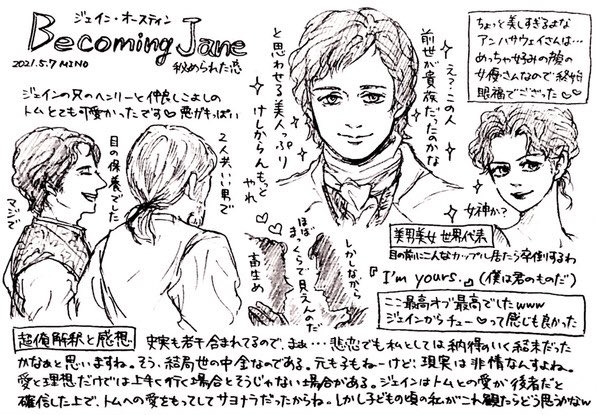 ジェイン・オースティン
Becoming Jane
2021.5.7 MINO
秘められた恋
ジェインの兄のヘンリーと仲良しこよしの
トムとても可愛かったです♡悪ガキっぽい
マジで
目の保養でした
2人共いい男で
え？この人
前世が貴族だったのかな
と思わせる美人っぷり
けしからんもっと
やれ
ちょっと美しすぎるよな
アン・ハサウェイさんは…
めっちゃ好みの顔の
女優さんなので終始
眼福でございた♡♡
女神か？
しかしながら
ほぼ
まっくらで見えんのだ
高生め
美男美女世界代表
目の前にこんなカップル居たら卒倒するわ
『I'm yours.』(僕は君のものだ)
ここ最高オブ最高でしたwww
ジェインからチュー♡って感じも良かった
超俺解釈と感想
史実も若干含まれてるので、まぁ…悲恋でも私としては納得のいく結末だった
かなぁと思いますね。そう、結局世の中金なのである。元も子もねーけど、現実は非情なんすよね。
愛と理想だけでは上手く行く場合とそうじゃない場合がある。ジェインはトムとの愛が後者だと
確信した上で、トムへの愛をもってしてサヨナラだったからね。しかし子どもの頃の私がこれ観たらどう思うかなw